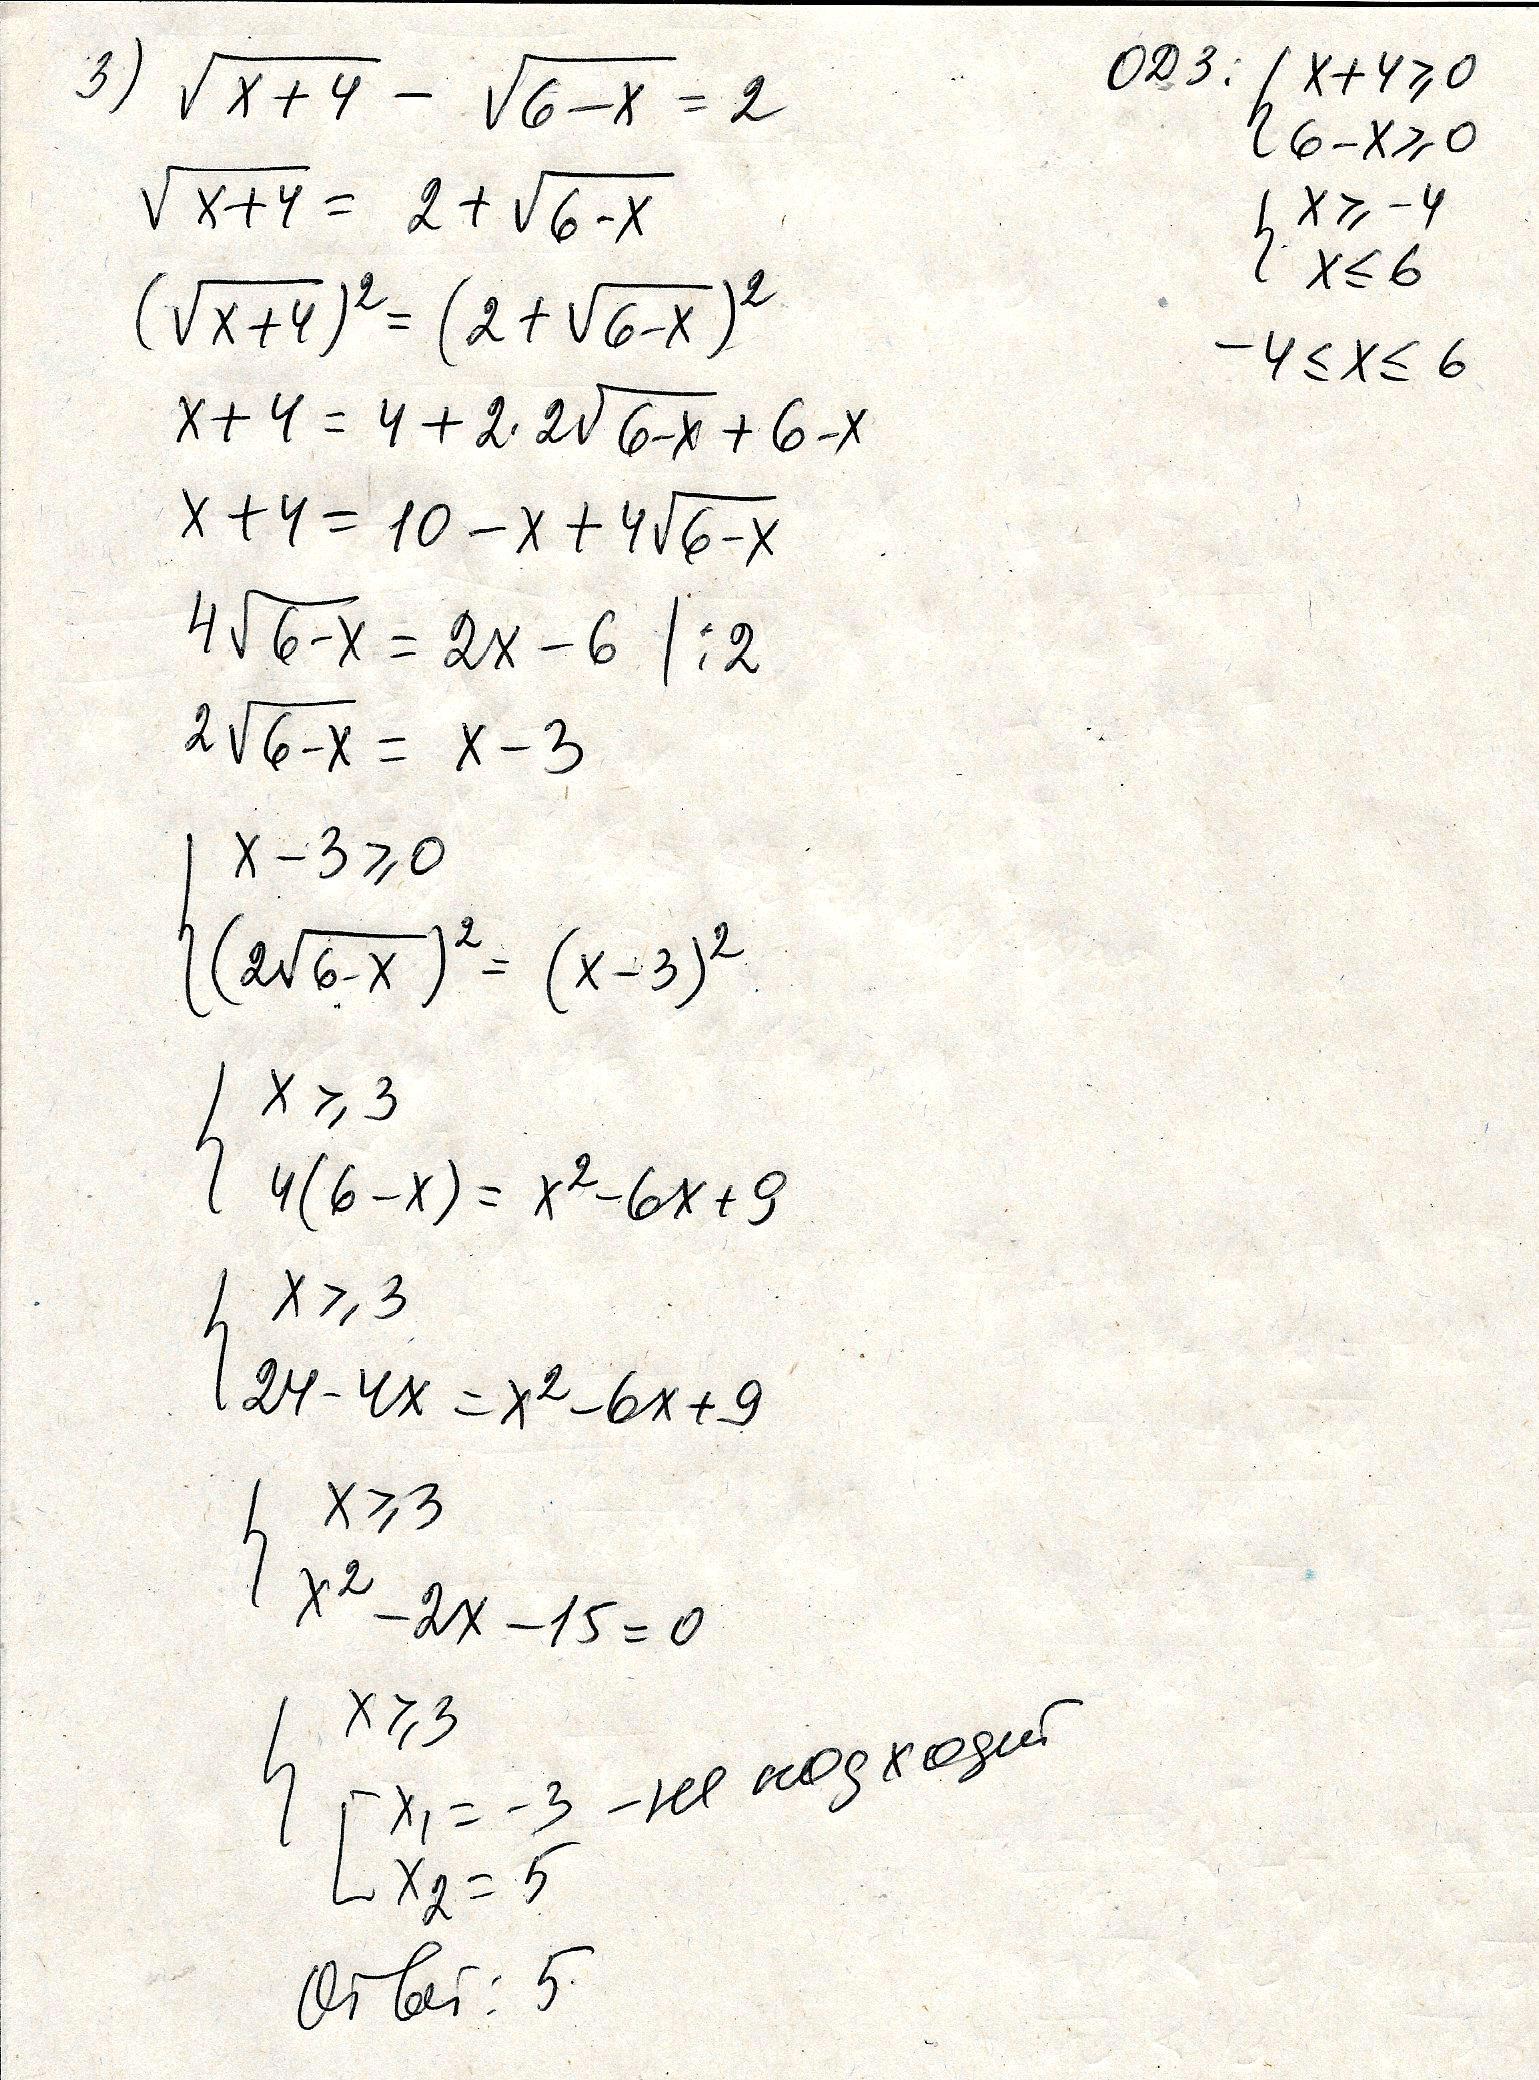 3) √(x+4) − √(6−x) = 2
ОДЗ: { x+4 ≥ 0
6−x ≥ 0
{ x ≥ −4
x ≤ 6
−4 ≤ x ≤ 6
√(x+4) = 2 + √(6−x)
(√(x+4))² = (2 + √(6−x))²
x+4 = 4 + 2·2√(6−x) + 6−x
x+4 = 10 − x + 4√(6−x)
4√(6−x) = 2x − 6 | :2
2√(6−x) = x − 3
{ x − 3 ≥ 0
(2√(6−x))² = (x−3)²
{ x ≥ 3
4(6−x) = x² − 6x + 9
{ x ≥ 3
24 − 4x = x² − 6x + 9
{ x ≥ 3
x² − 2x − 15 = 0
{ x ≥ 3
[ x₁ = −3 – не подходит
x₂ = 5
Ответ: 5